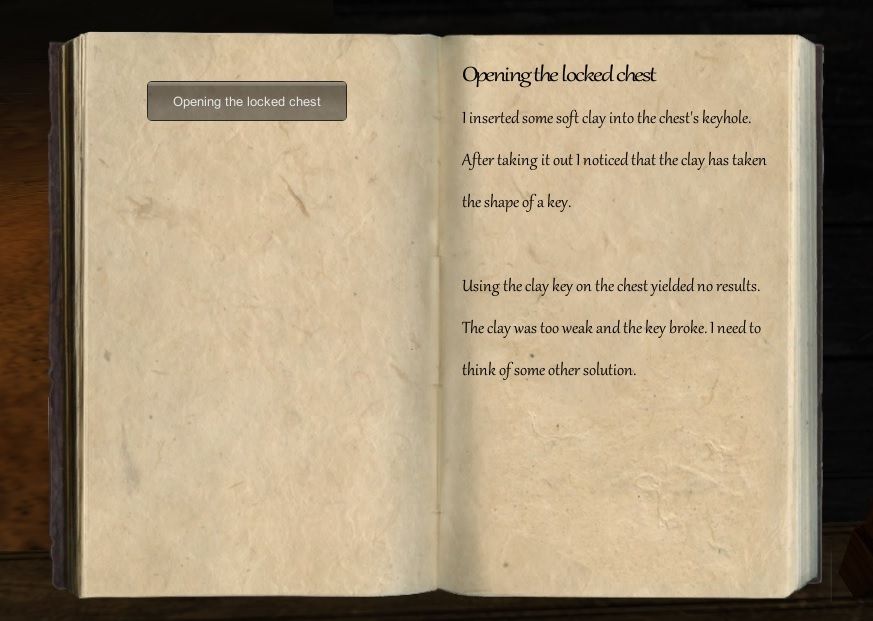 Opening the locked chest
Opening the locked chest
I inserted some soft clay into the chest's keyhole.
After taking it out I noticed that the clay has taken
the shape of a key.
Using the clay key on the chest yielded no results.
The clay was too weak and the key broke. I need to
think of some other solution.